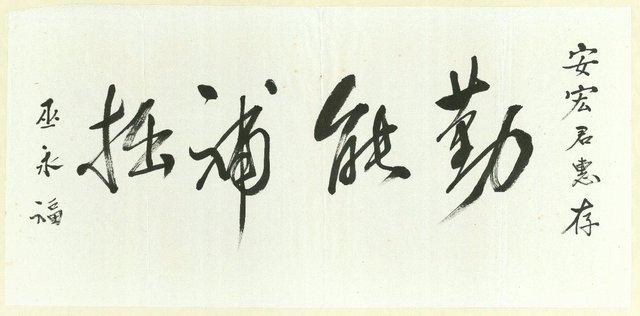 安宏君惠存
勤能補拙
巫永福